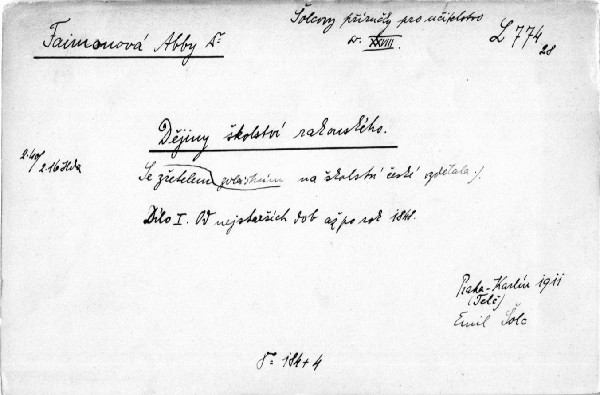 Šolcovy příručky pro učitelstvo
sv. XXVIII.
L 774
28
Faimonová Abby Dr
Dějiny školství rakouského.
2·40
2·16 Hda
Se zřetelem zvláštním na školství české vzdělala:).
Dílo I. Od nejstarších dob až po rok 1848.
Praha-Karlín 1911
(Telč)
Emil Šolc
8° 184+4